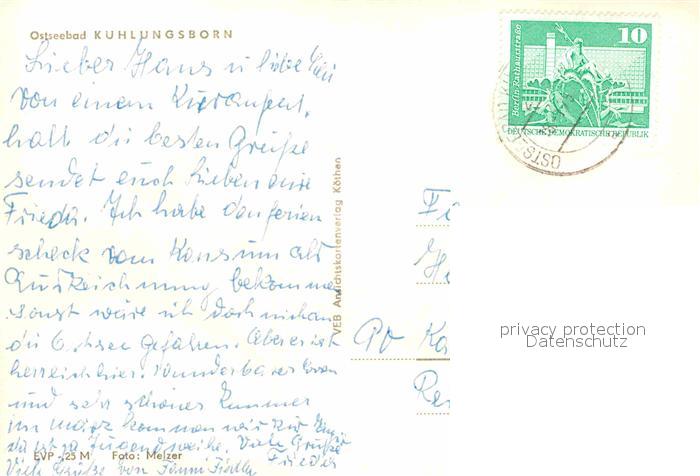 Ostseebad KÜHLUNGSBORN
Lieber Hans u liebe
von einem Kuraufent.
halt die besten Grüße
sendet euch Lieben eure
Frieda. Ich habe den ferien
scheck vom Konsum als
Auszeichnung bekommen
sonst wäre ich doch nich an
die Ostsee gefahren. Aber es ist
herrlich hier. Wunderbarer
und sehr schönes Zimmer
im März kommen wir zur
da ist ja Jugendweihe. Viele Grüße
Frieda
Viele Grüße von
EVP -,25 M Foto: Melzer
VEB Ansichtskartenverlag Köthen
10
Berlin, Rathausstraße
DEUTSCHE DEMOKRATISCHE REPUBLIK
privacy protection
Datenschutz